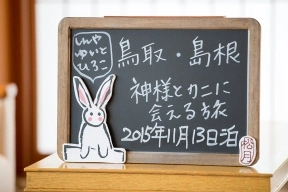 しんや
ゆいと
ひろこ
鳥取・島根
神様とカニに
会える旅
2015年11月13日泊
松月